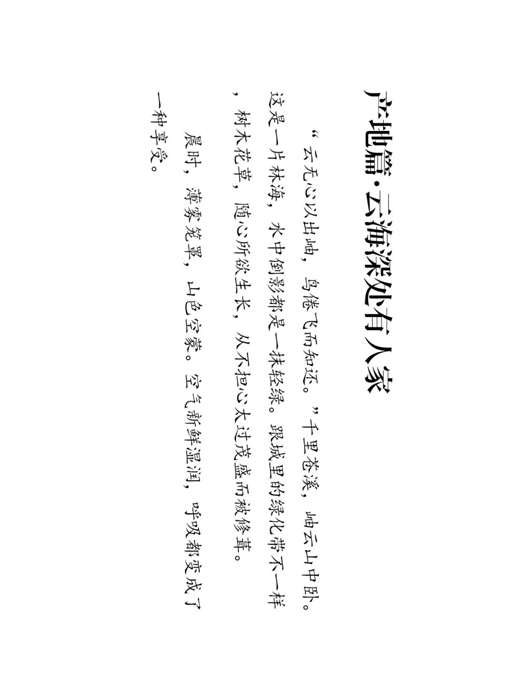 产地篇·云海深处有人家
“云无心以出岫，鸟倦飞而知还。”千里苍溪，岫云山中卧。
这是一片林海，水中倒影都是一抹轻绿。跟城里的绿化带不一样
，树木花草，随心所欲生长，从不担心太过茂盛而被修葺。
晨时，薄雾笼罩，山色空蒙。空气新鲜湿润，呼吸都变成了
一种享受。